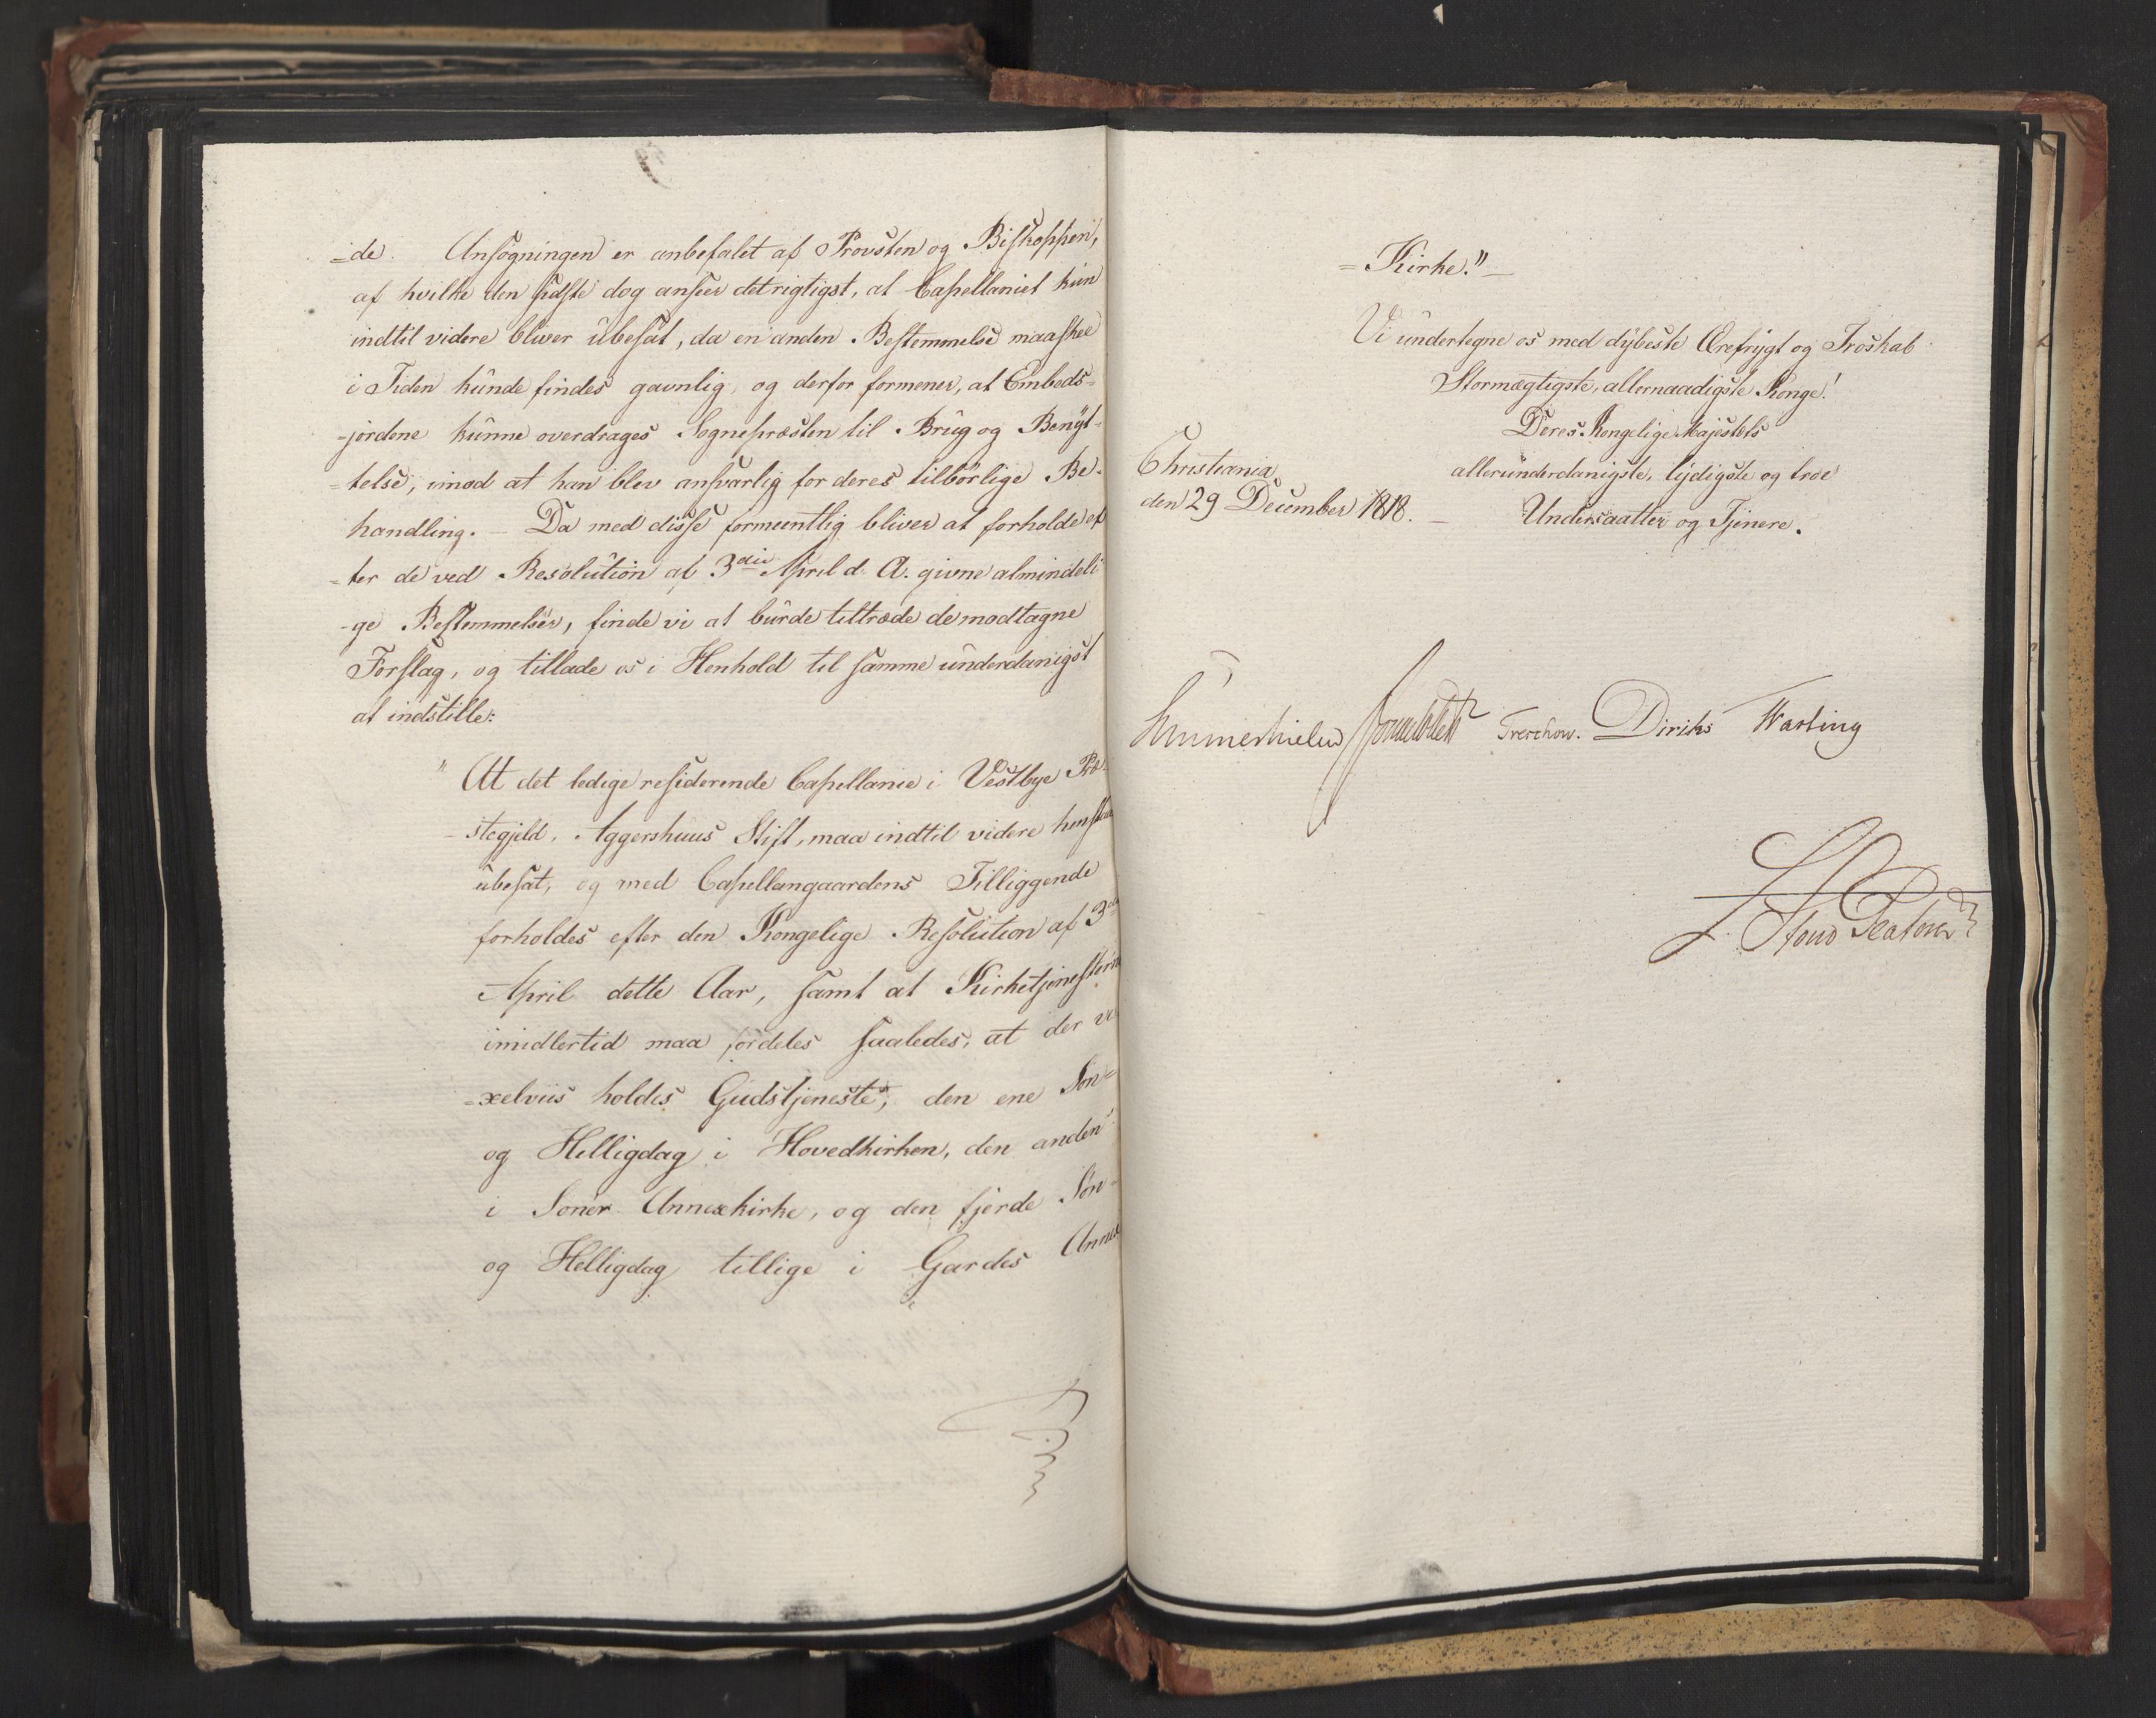 =de. Ansøgningen er anbefalet af Provsten og Biskoppen,
af hvilke den sidste dog anseer det rigtigst, at Capellaniet kun
indtil videre bliver übesat, da en anden Bestemmelse maaskee
i Tiden kunde findes gavnlig, og derfor formener, at Embeds-
=jordene kunne overdrages Sognepræsten til Brug og Benyt-
=telse, imod at han blev ansvarlig for deres tilbørlige Be-
handling. — Da med disse formeentlig bliver at forholde ef
=ter de ved Resolution af 3die April d. A. givne almindeli
-ge Bestemmelser, finde vi at burde tiltræde de modtagne
Forslag, og tillade os i Henhold til samme underdanigst
at indstille:
" At det ledige residerende Capellanie i Vestbye Præ-
-stegjeld, Aggershuus Stift, maa indtil videre henstaae
ubesat, og med Capellangaardens Tilliggende
forholdes efter den Kongelige Resolution af 3die
April dette Aar, samt at Kirketjenesten
imidlertid maa fordeles saaledes, at der ve
=xelviis holdes Gudstjeneste, den ene Søn-
og Helligdag i Hovedkirken, den anden
i Soner Annexkirke, og den fjerde Søn-
og Helligdag tillige i Garder Annex
=Kirke." —
Vi undertegne os med dybeste Ærefrygt og Troskab
Stormægtigste, allernaadigste Konge!
Deres Kongelige Majestets
allerunderdanigste, lydigste og troe
Undersaatter og Tjenere.
Christiania
den 29 December 1818. —
Hummerhielm Sommerfeldt Treschow. Diriks Wasting